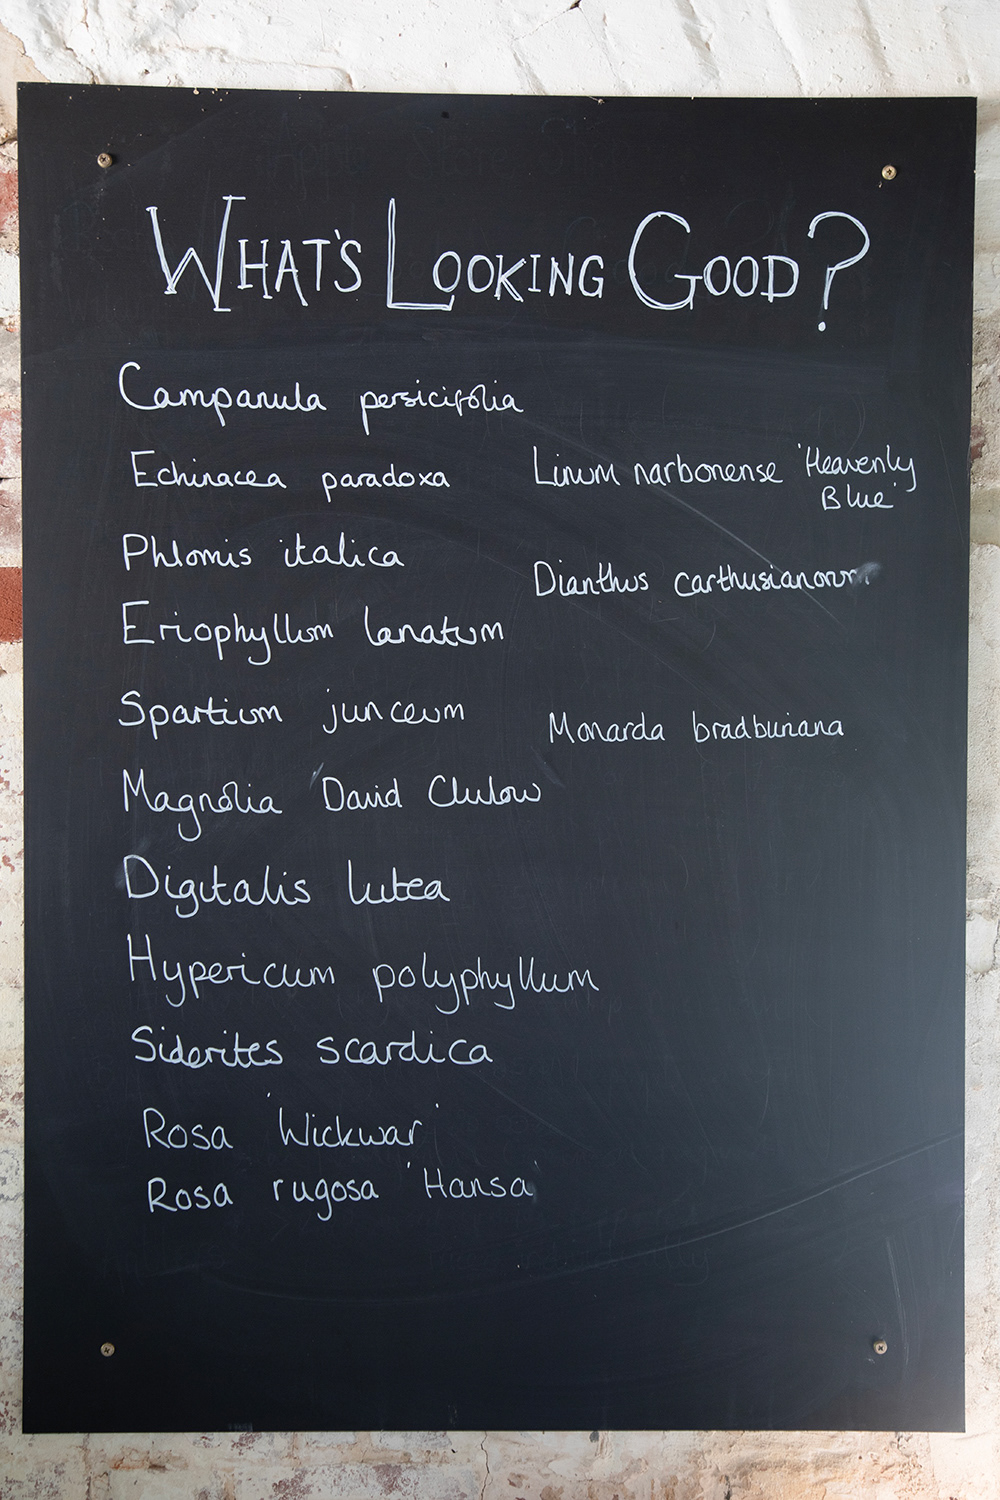 WHAT'S LOOKING GOOD?
Campanula persicifolia
Echinacea paradoxa
Phlomis italica
Eriophyllum lanatum
Spartium junceum
Magnolia 'David Clulow
Digitalis lutea
Hypericum polyphyllum
Siderites scardica
Rosa 'Wickwar'
Rosa rugosa 'Hansa'
Linum narbonense 'Heavenly
Blue'
Dianthus carthusianorum
Monarda bradburiana